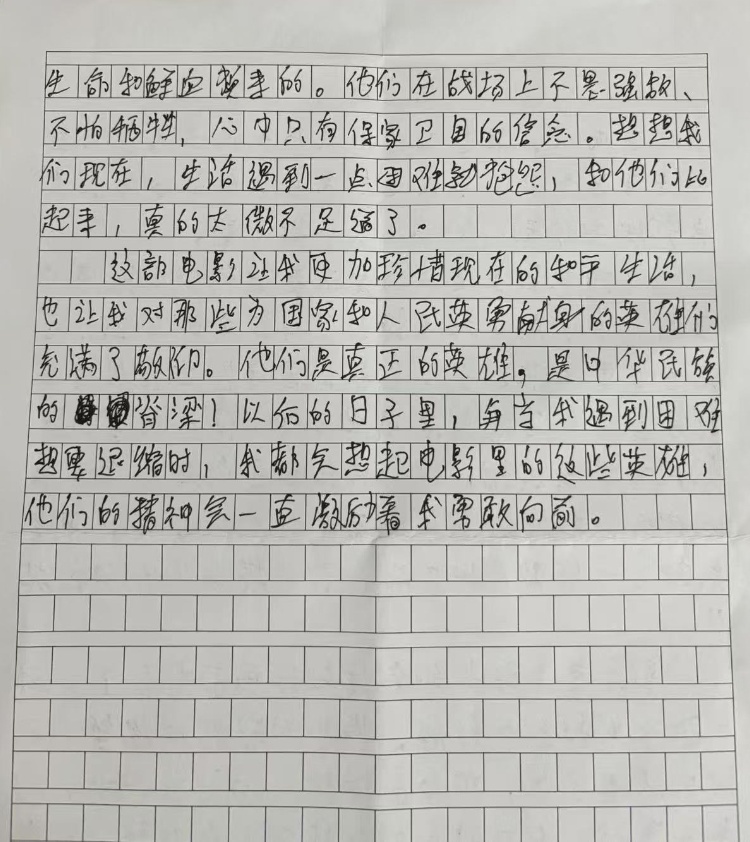 生命和鲜血换来的。他们在战场上不畏强敌、
不怕牺牲，心中只有保家卫国的信念。想想我
们现在，生活遇到一点困难就抱怨，和他们比
起来，真的太微不足道了。
这部电影让我更加珍惜现在的和平生活，
也让我对那些为国家和人民英勇献身的英雄们
充满了敬仰。他们是真正的英雄，是中华民族
的脊梁！以后的日子里，每当我遇到困难
想要退缩时，我都会想起电影里的这些英雄，
他们的精神会一直激励着我勇敢向前。